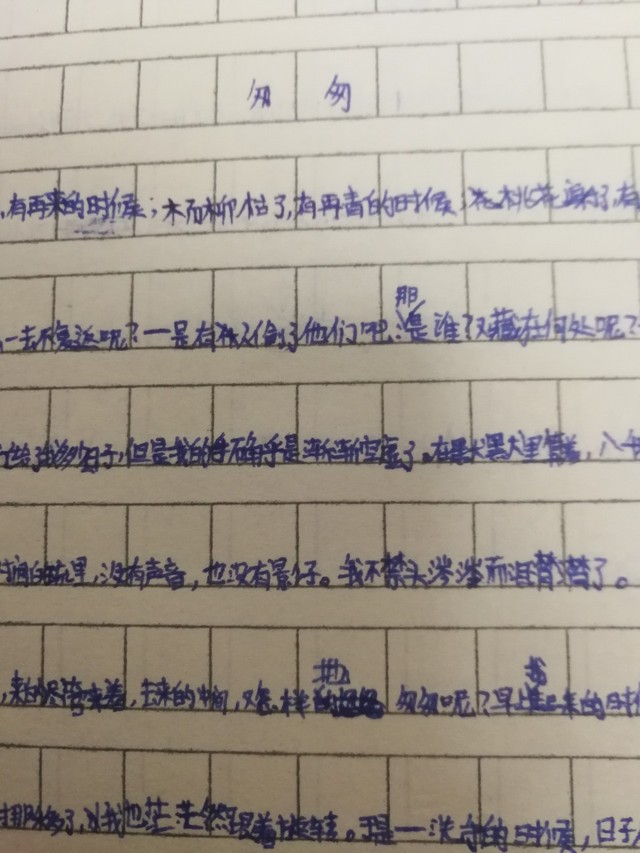 匆匆
，有再来的时候；木而柳枯了，有再青的时候；花桃花谢了，有
一去不复返呢？一是有人偷了他们吧：那是谁？又藏在何处呢？
给了我多少日子，但是我的手确乎是渐渐空虚了。在黑犬黑犬里算着，八千
时间的流里，没有声音，也没有影子。我不禁头涔涔而泪潸潸了。
，来的尽管来着，去来的中间，又怎样地匆匆呢？早上我起来的时候
挪移了，我也茫茫然跟着旋转。于是——洗手的时候，日子